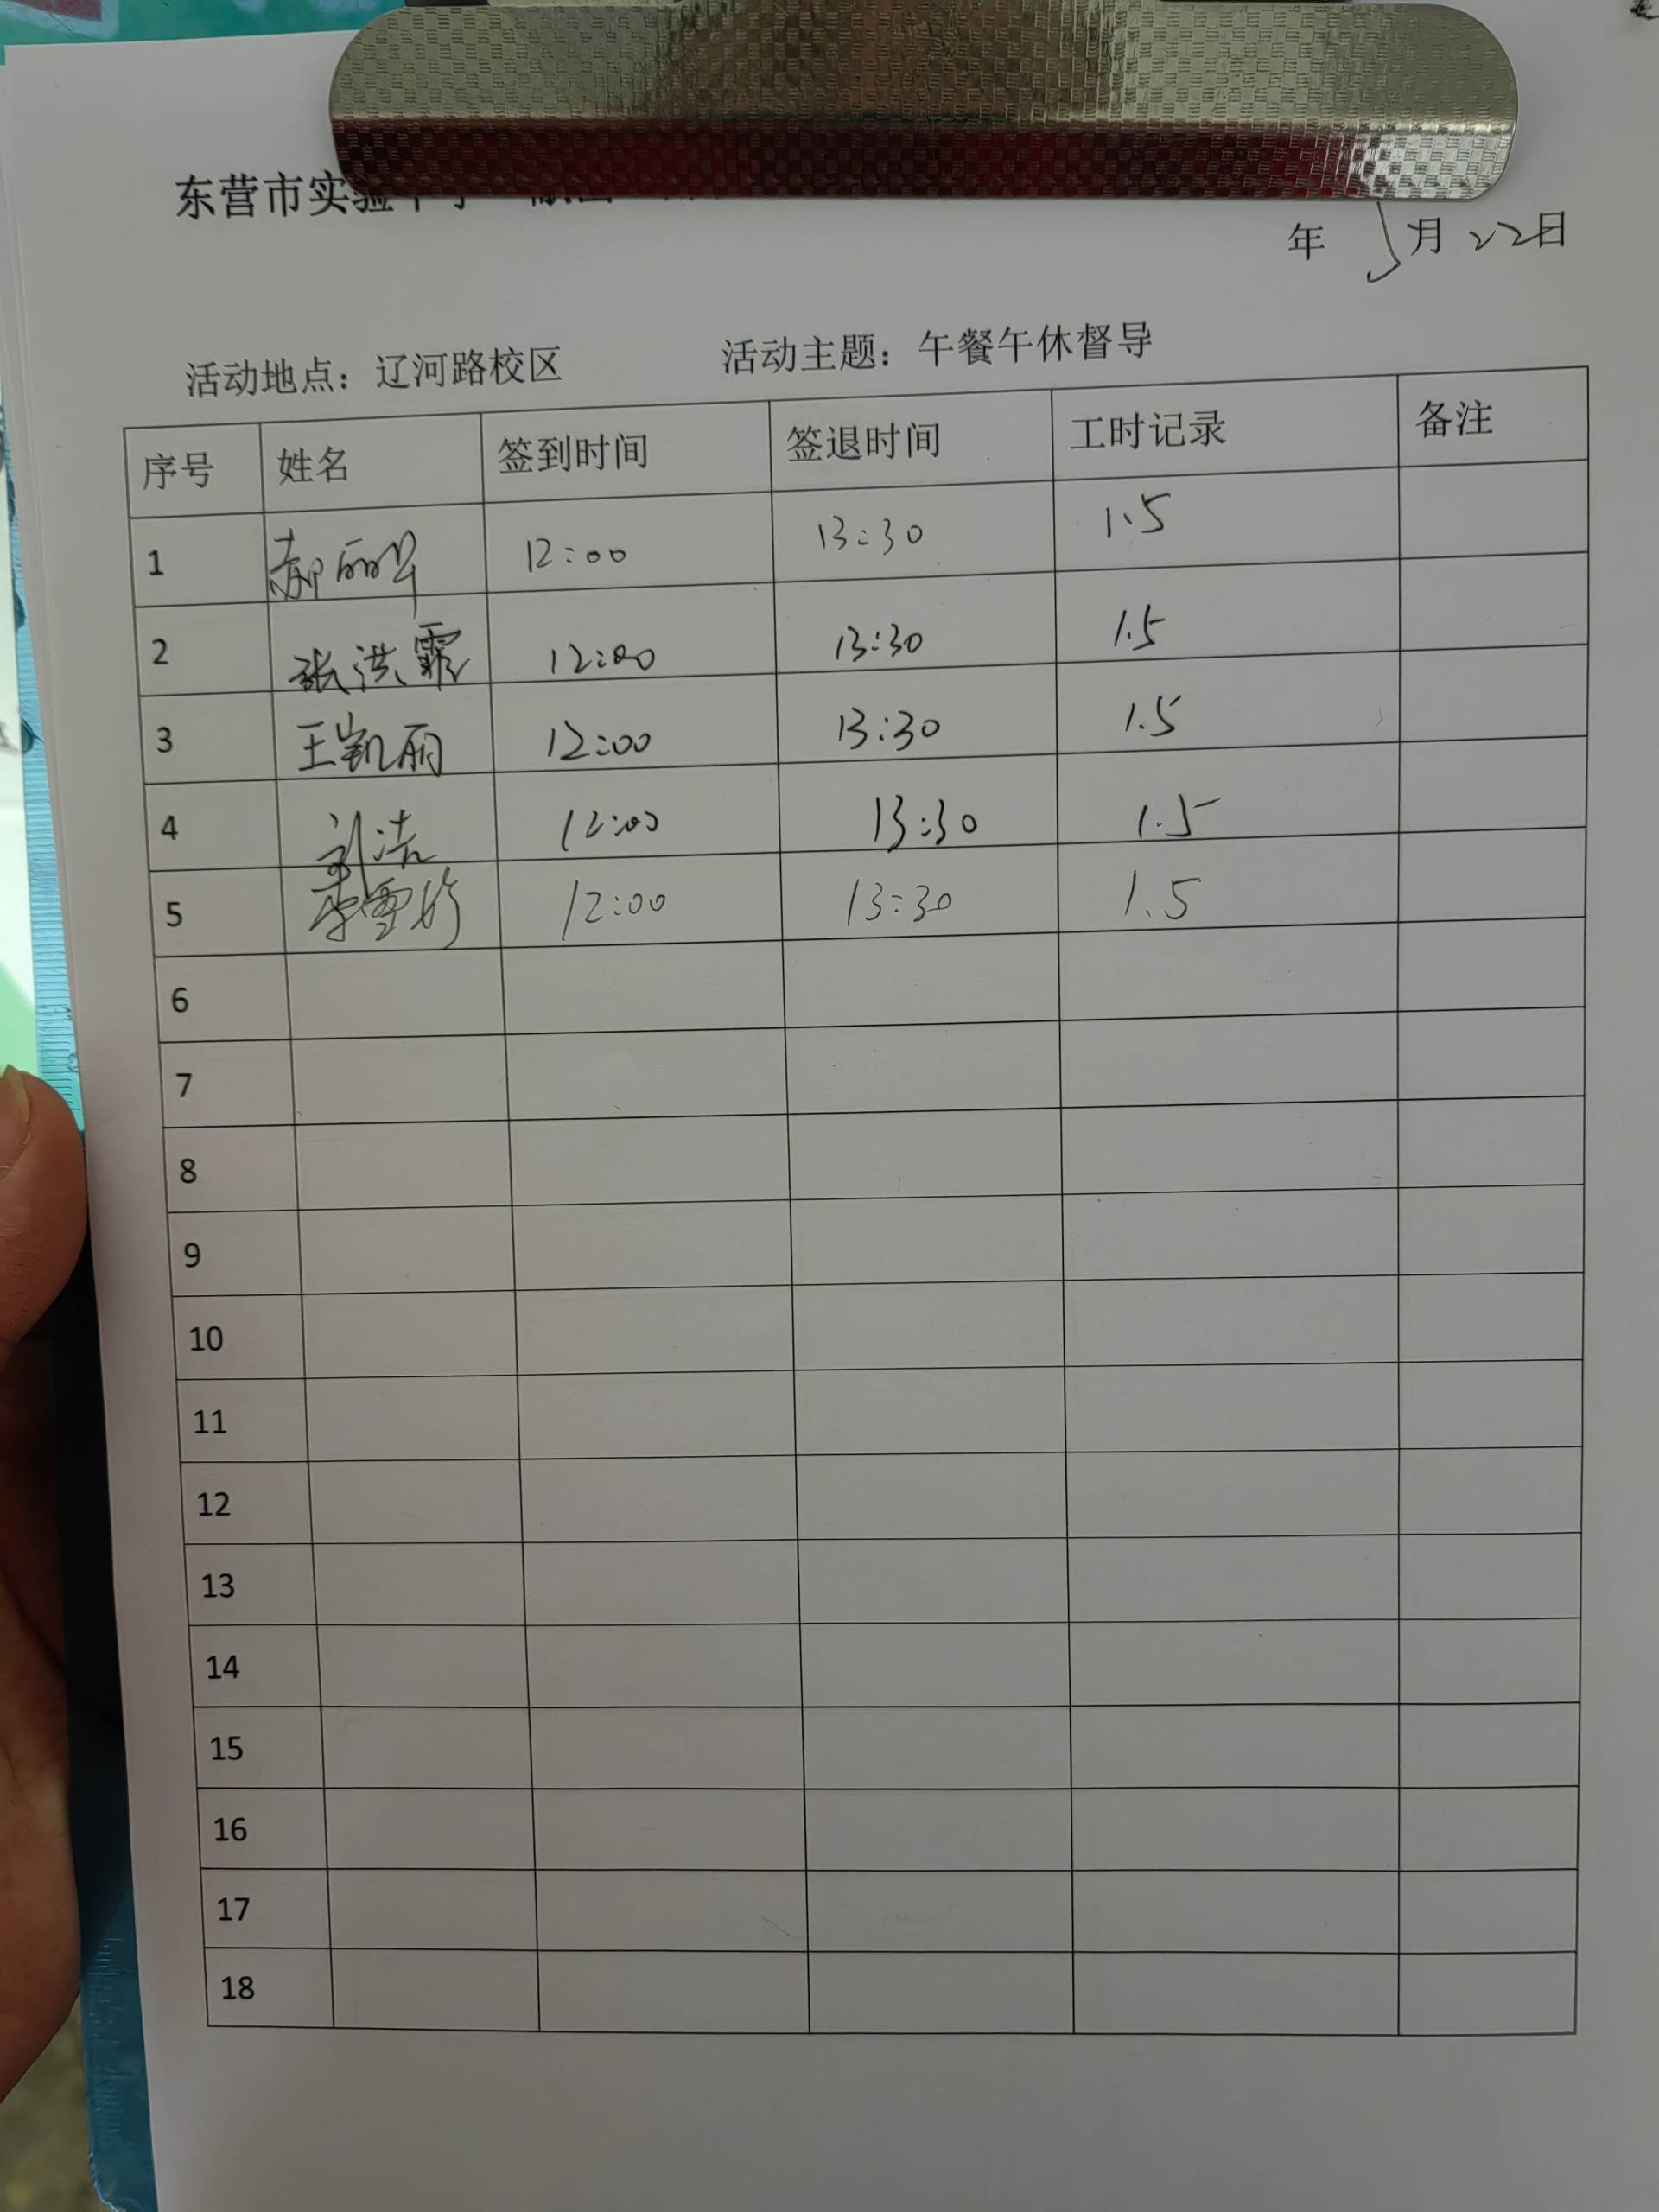 东营市实验
年 5月22日
活动地点：辽河路校区 活动主题：午餐午休督导
序号 姓名 签到时间 签退时间 工时记录 备注
1 郝丽华 12:00 13:30 1.5
2 张洪霏 12:00 13:30 1.5
3 王凯丽 12:00 13:30 1.5
4 刘洁 12:00 13:30 1.5
5 李雪 12:00 13:30 1.5
6
7
8
9
10
11
12
13
14
15
16
17
18